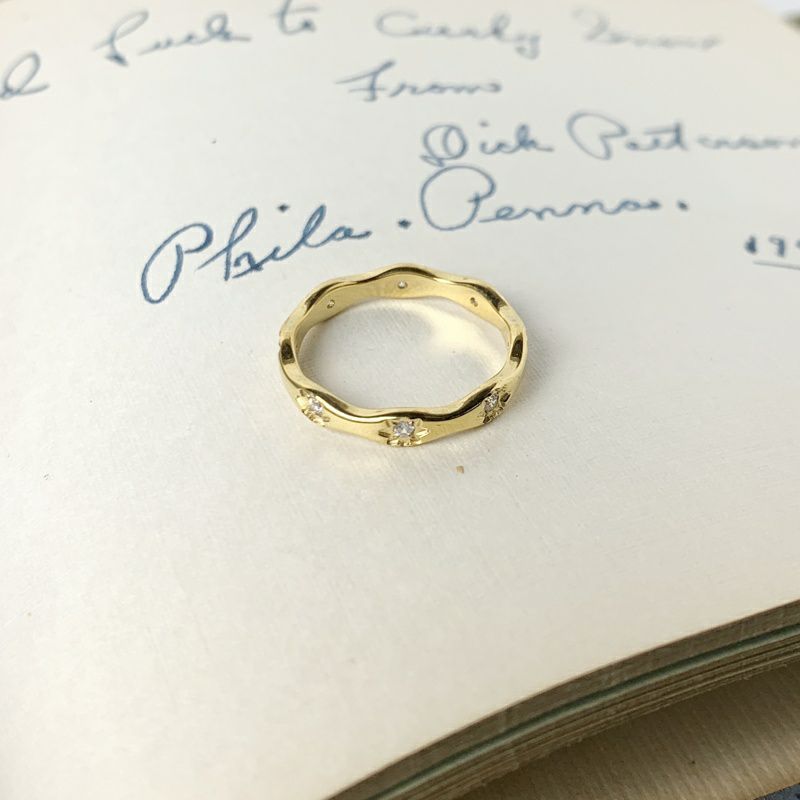 Luck to Curly
From
Dick Patterson
Phila. Penna.